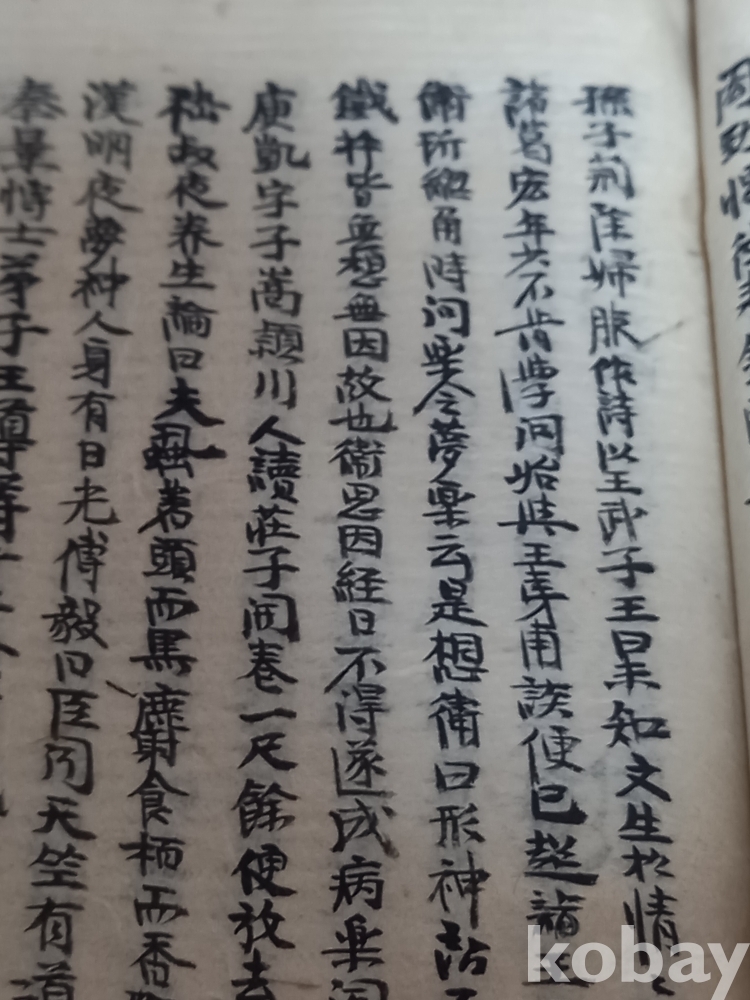 孫子荊除婦服作詩以王武子王曰未知文生於情
諸葛宏年少不肯學問始與王夷甫談便已超詣王
衛玠總角時問樂令夢樂云是想衛曰形神
鐵杵皆無想無因故也衛思因經日不得遂成病樂聞
庾凱字子嵩穎川人讀莊子開卷一尺餘便放去
嵇叔夜养生論曰夫虱著頭而黑麝食栢而香
漢明夜夢神人身有日光傅毅曰臣聞天竺有道
秦景博士弟子王遵等
kobay